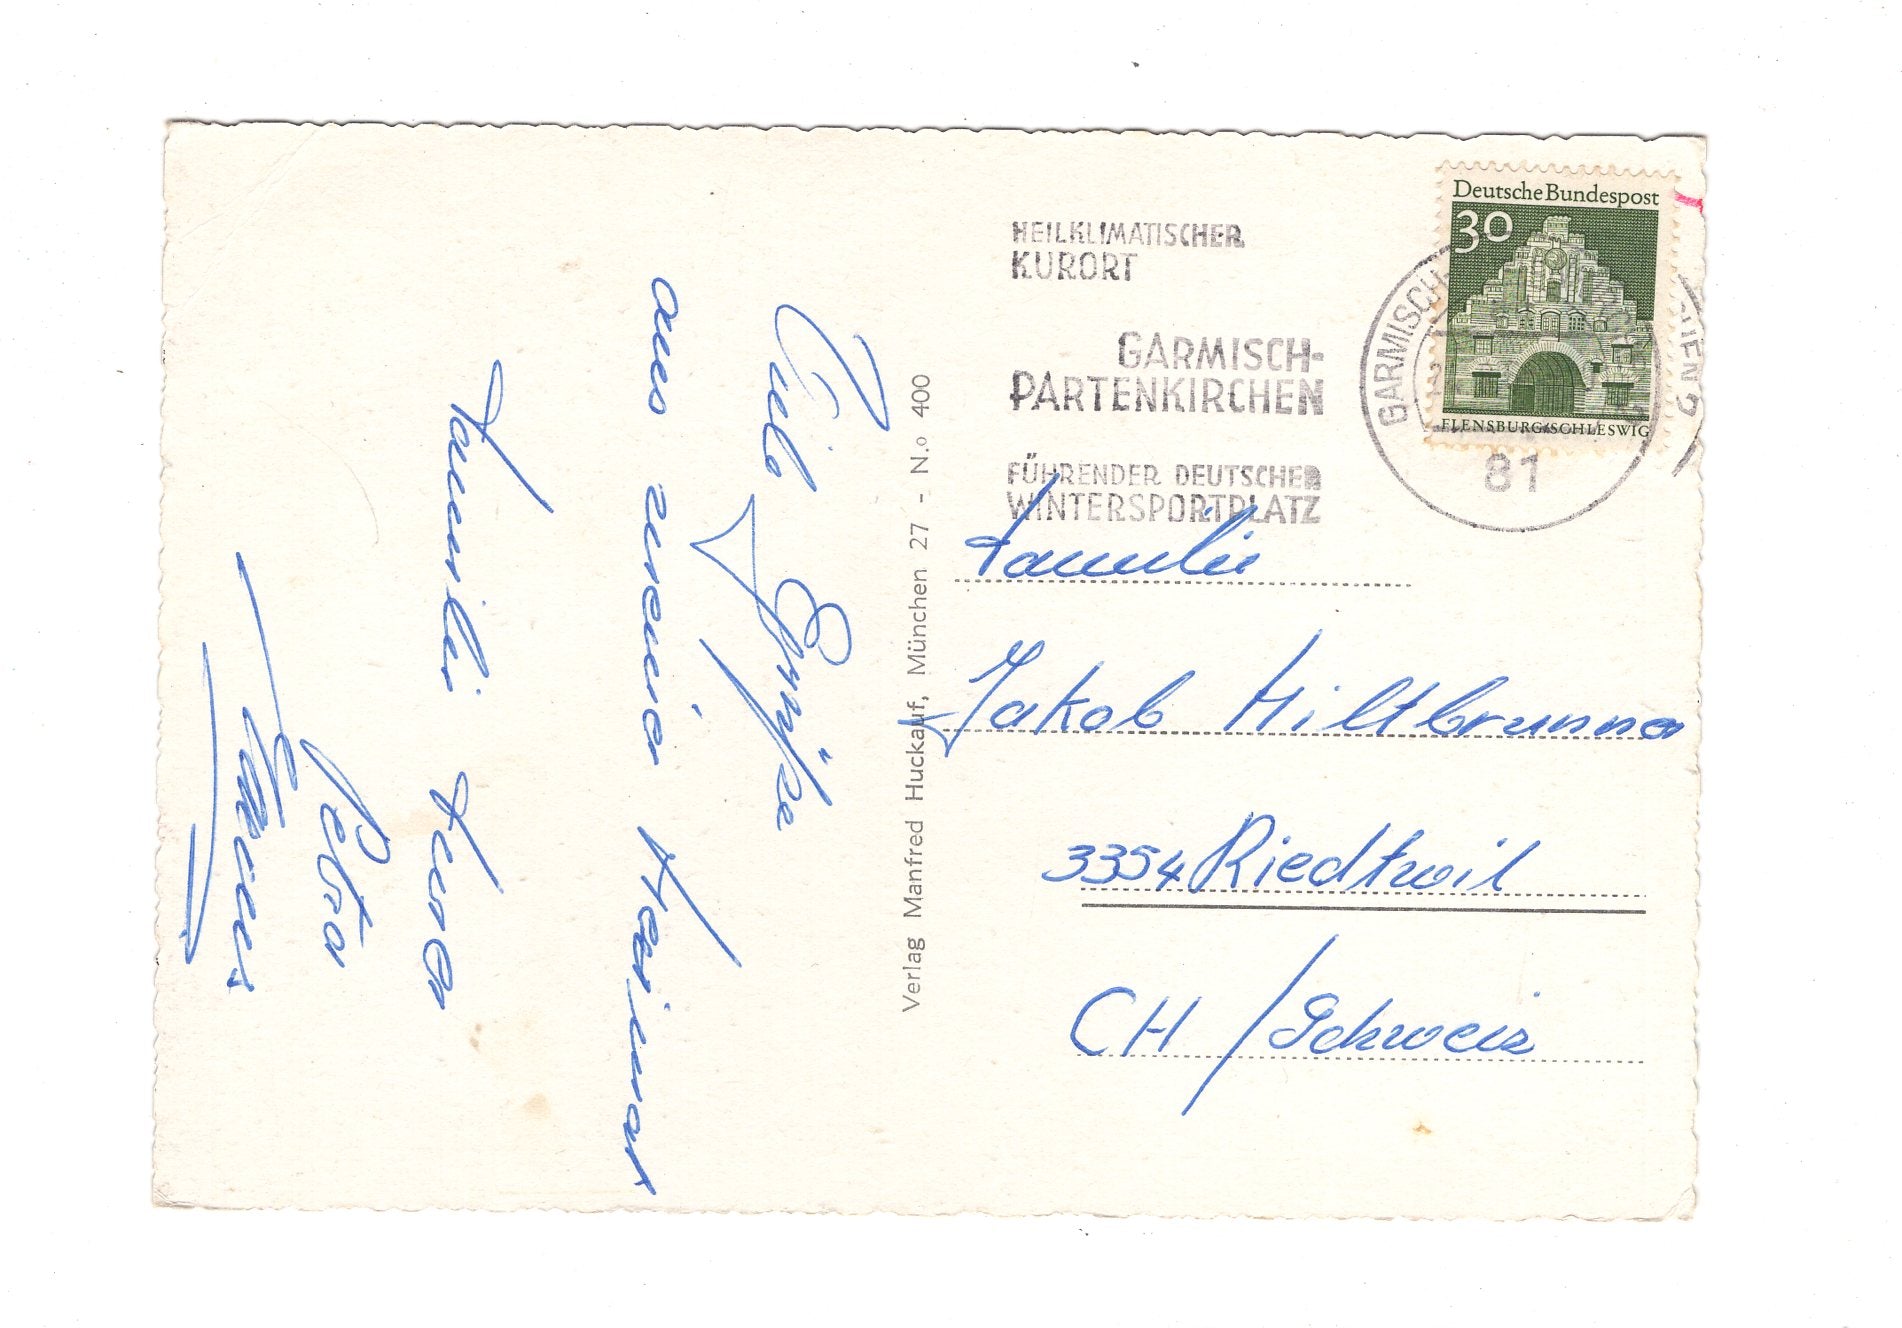 Viele Grüße
aus meiner Heimat
Familie
Petra
Verlag Manfred Huckauf, München 27 - N.o 400
HEILKLIMATISCHER
KURORT
GARMISCH-
PARTENKIRCHEN
FÜHRENDER DEUTSCHER
WINTERSPORTPLATZ
GARMISCH-
81
Deutsche Bundespost
30
FLENSBURG/SCHLESWIG
Familie
Jakob Hiltbrunner
3354 Riedtwil
CH / Schweiz